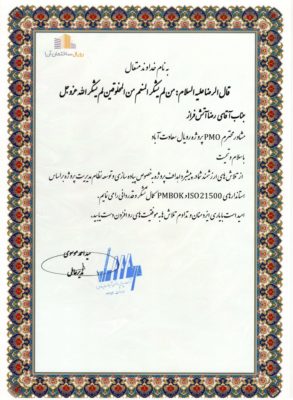 رویال ساختمان آریا
به نام خداوند متعال
قال الرضا علیه السلام: من لم یشکر المنعم من المخلوقین لم یشکر الله عزوجل
جناب آقای رضا آتش فراز
مشاور محترم PMO پروژه رویال سعادت آباد
با سلام و تحیت
از تلاش های ارزشمند شما در پیشبرد اهداف پروژه به خصوص پیاده سازی و توسعه نظام مدیریت پروژه بر اساس
استاندارهای ISO21500 و PMBOK کمال تشکر و قدردانی را می نمایم.
امید است با یاری ایزد منان و تداوم تلاش ها به موفقیت های روز افزون دست یابید.
سید احمد موسوی
مدیرعامل